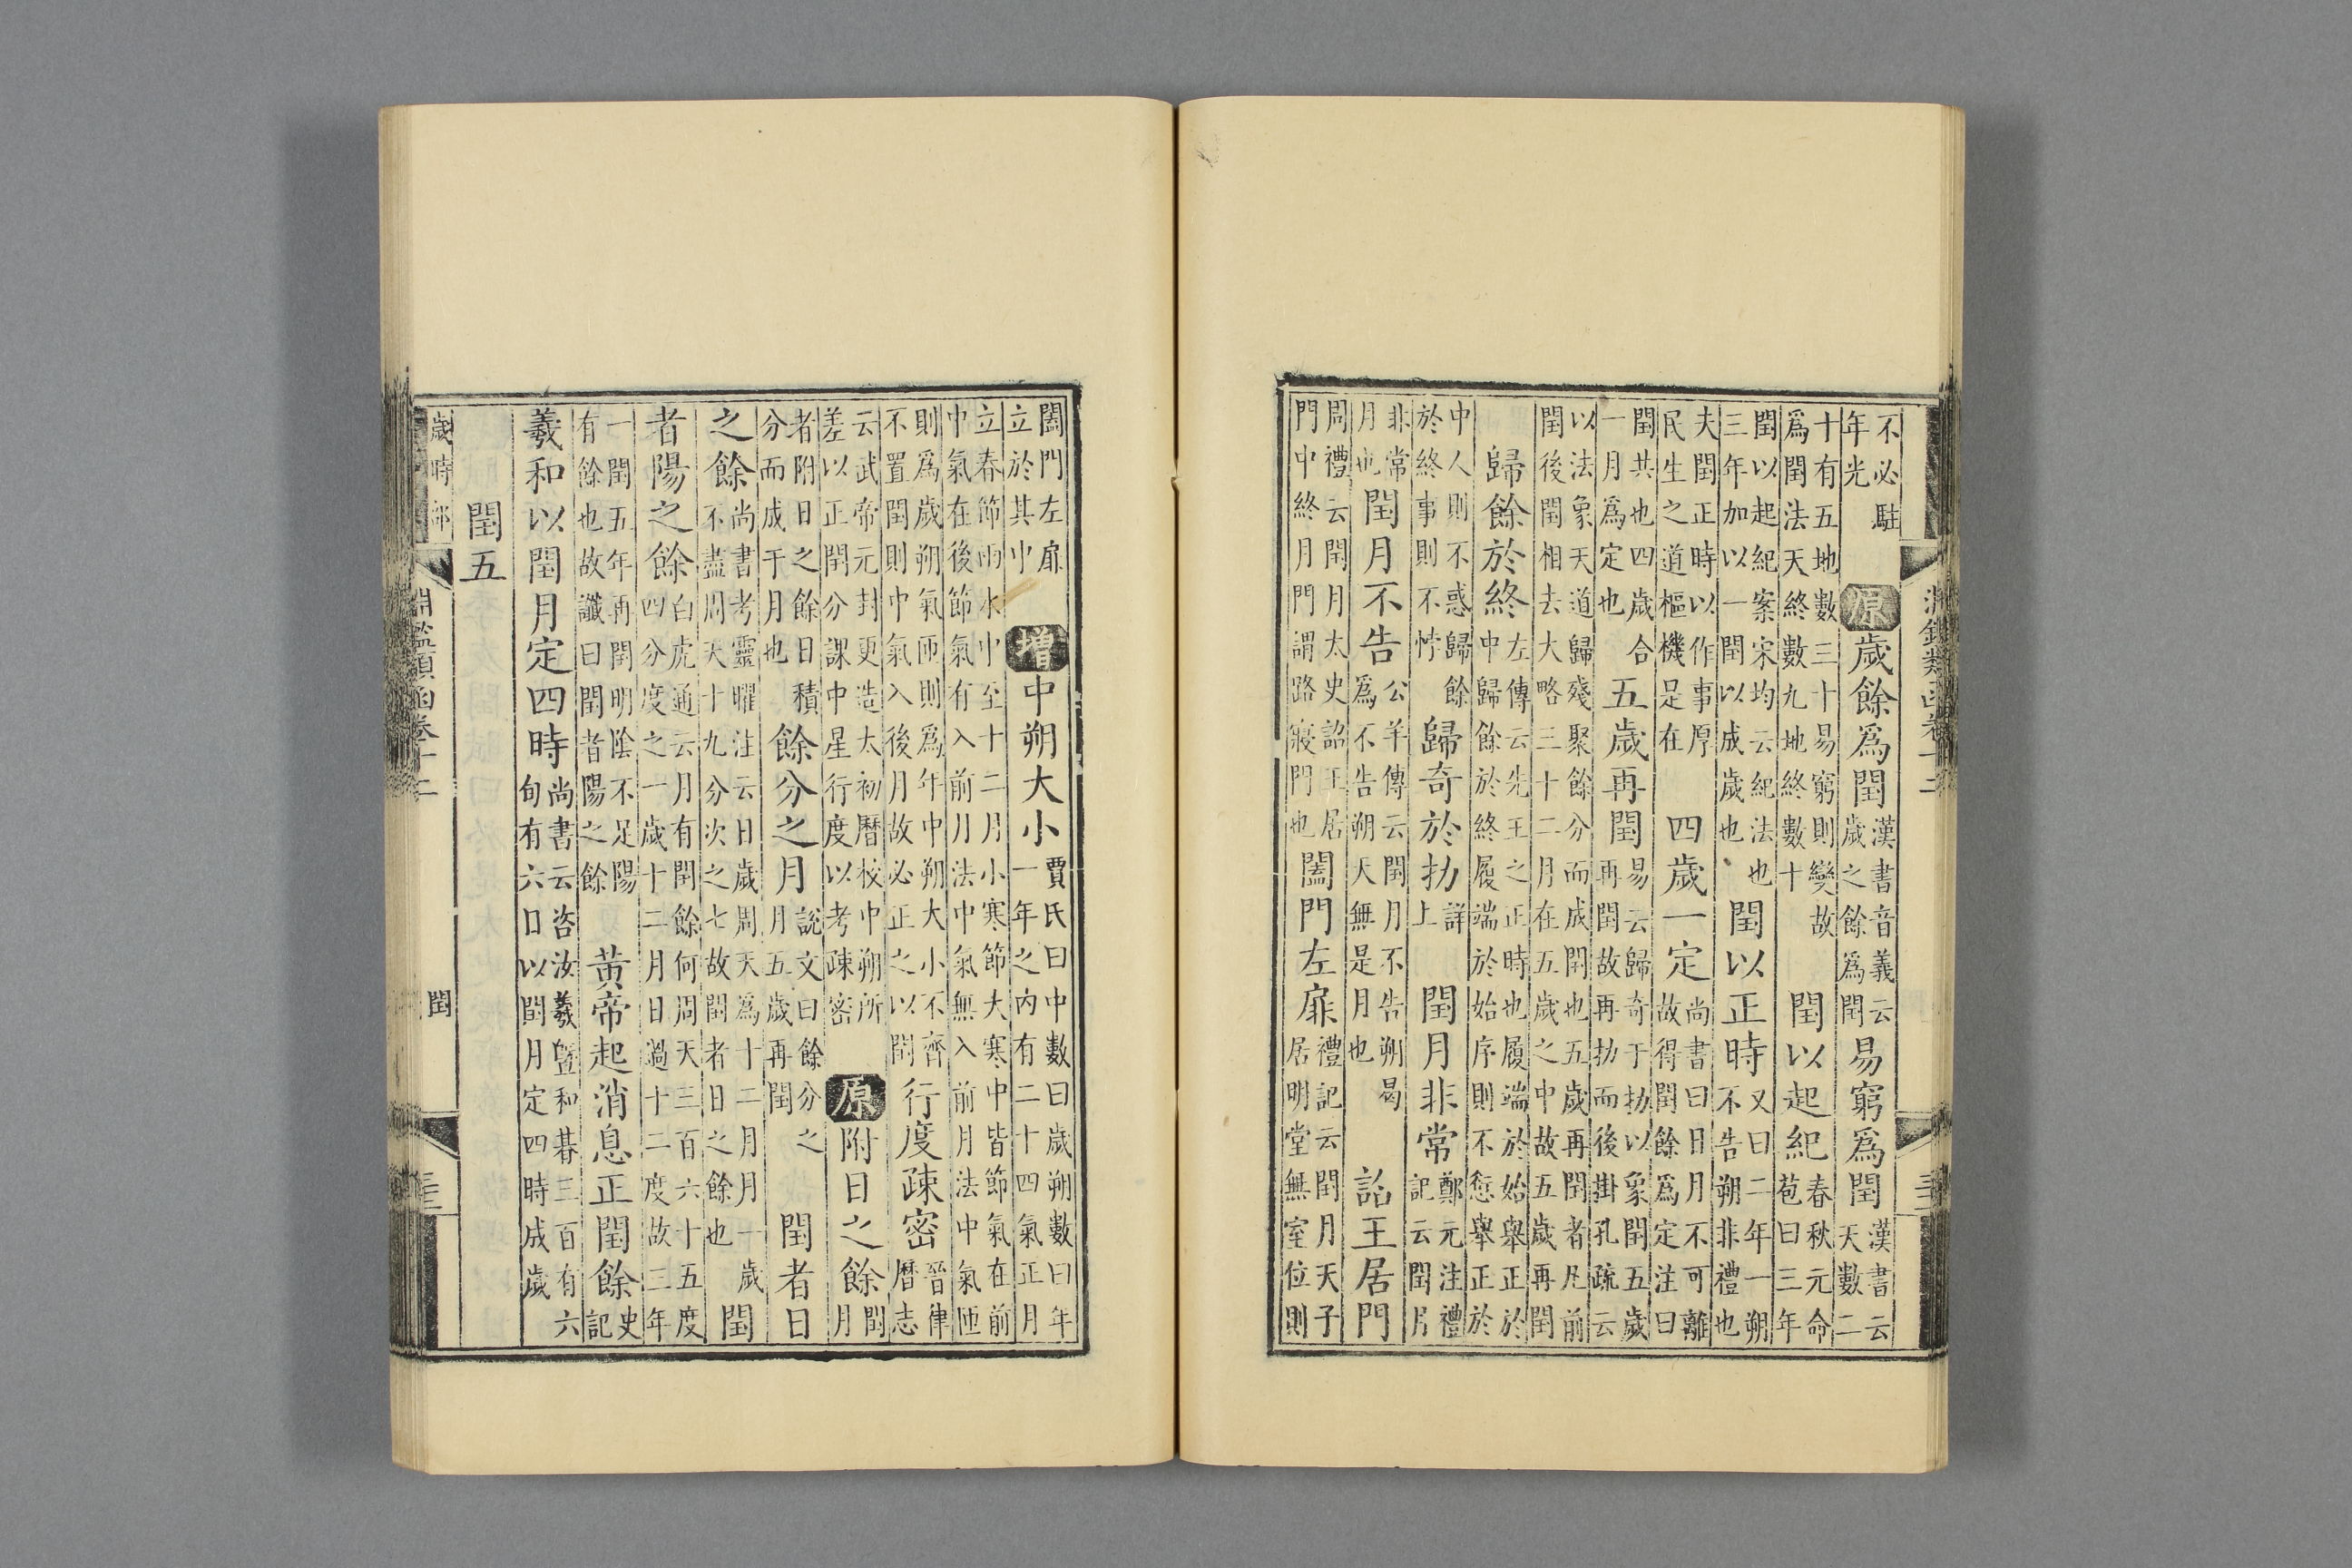 淵鑑類函卷十二
不必駐年光原歲餘爲閏漢書音義云歲之餘爲閏易窮爲閏漢書云天數二
十有五地數三十易窮則變故爲閏法天終數九地終數十閏以起紀春秋元命苞曰三年
閏以起紀案宋均云紀法也三年加以一閏以成歲也閏以正時又曰二年一朔不告朔非禮也
夫閏正時以作事厚民生之道樞機足在四歲一定尚書曰日月不可離故得閏餘爲定注曰
閏其也四歲合一月爲定也五歲再閏易云歸奇于扐以象閏五歲再閏故再扐而後掛孔疏云
以法象天道歸殘聚餘分而成閏也五歲再閏者凡前閏後閏相去大略三十二月在五歲之中故五歲再閏
歸餘於終左傳云先王之正時也履端於始舉正於中歸餘於終履端於始序則不愆舉正於
中人則不惑歸餘於終事則不悖歸奇於扐詳上閏月非常鄭元注禮記云閏月
非常月也閏月不告公羊傳云閏月不告朔曷爲不告朔天無是月也詔王居門
周禮云閏月太史詔王居門中終月門謂路寢門也闔門左扉禮記云閏月天子居明堂無室位則
闔門左扉立於其中增中朔大小賈氏曰中數曰歲朔數曰年一年之內有二十四氣正月
立春節雨水中至十二月小寒節大寒中皆節氣在前中氣在後節氣有入前月法中氣無入前月法中氣匝
則爲歲朔氣匝則爲年中朔大小不齊不置閏則中氣入後月故必正之以閏行度疎密晉律曆志
云武帝元封更造太初曆校中朔所差以正閏分課中星行度以考疎密原附日之餘閏月
者附日之餘日積分而成于月也餘分之月說文曰餘分之月五歲再閏閏者日
之餘尚書考靈曜注云日歲周天爲十二月月一歲不盡周天十九分次之七故閏者日之餘也閏
者陽之餘白虎通云月有閏餘何周天三百六十五度四分度之一歲十二月日過十二度故三年
一閏五年再閏明陰不足陽有餘也故讖曰閏者陽之餘黃帝起消息正閏餘史記
羲和以閏月定四時尚書云咨汝羲曁和朞三百有六旬有六日以閏月定四時成歲
閏五
歲時部 淵鑑類函卷十二 閏